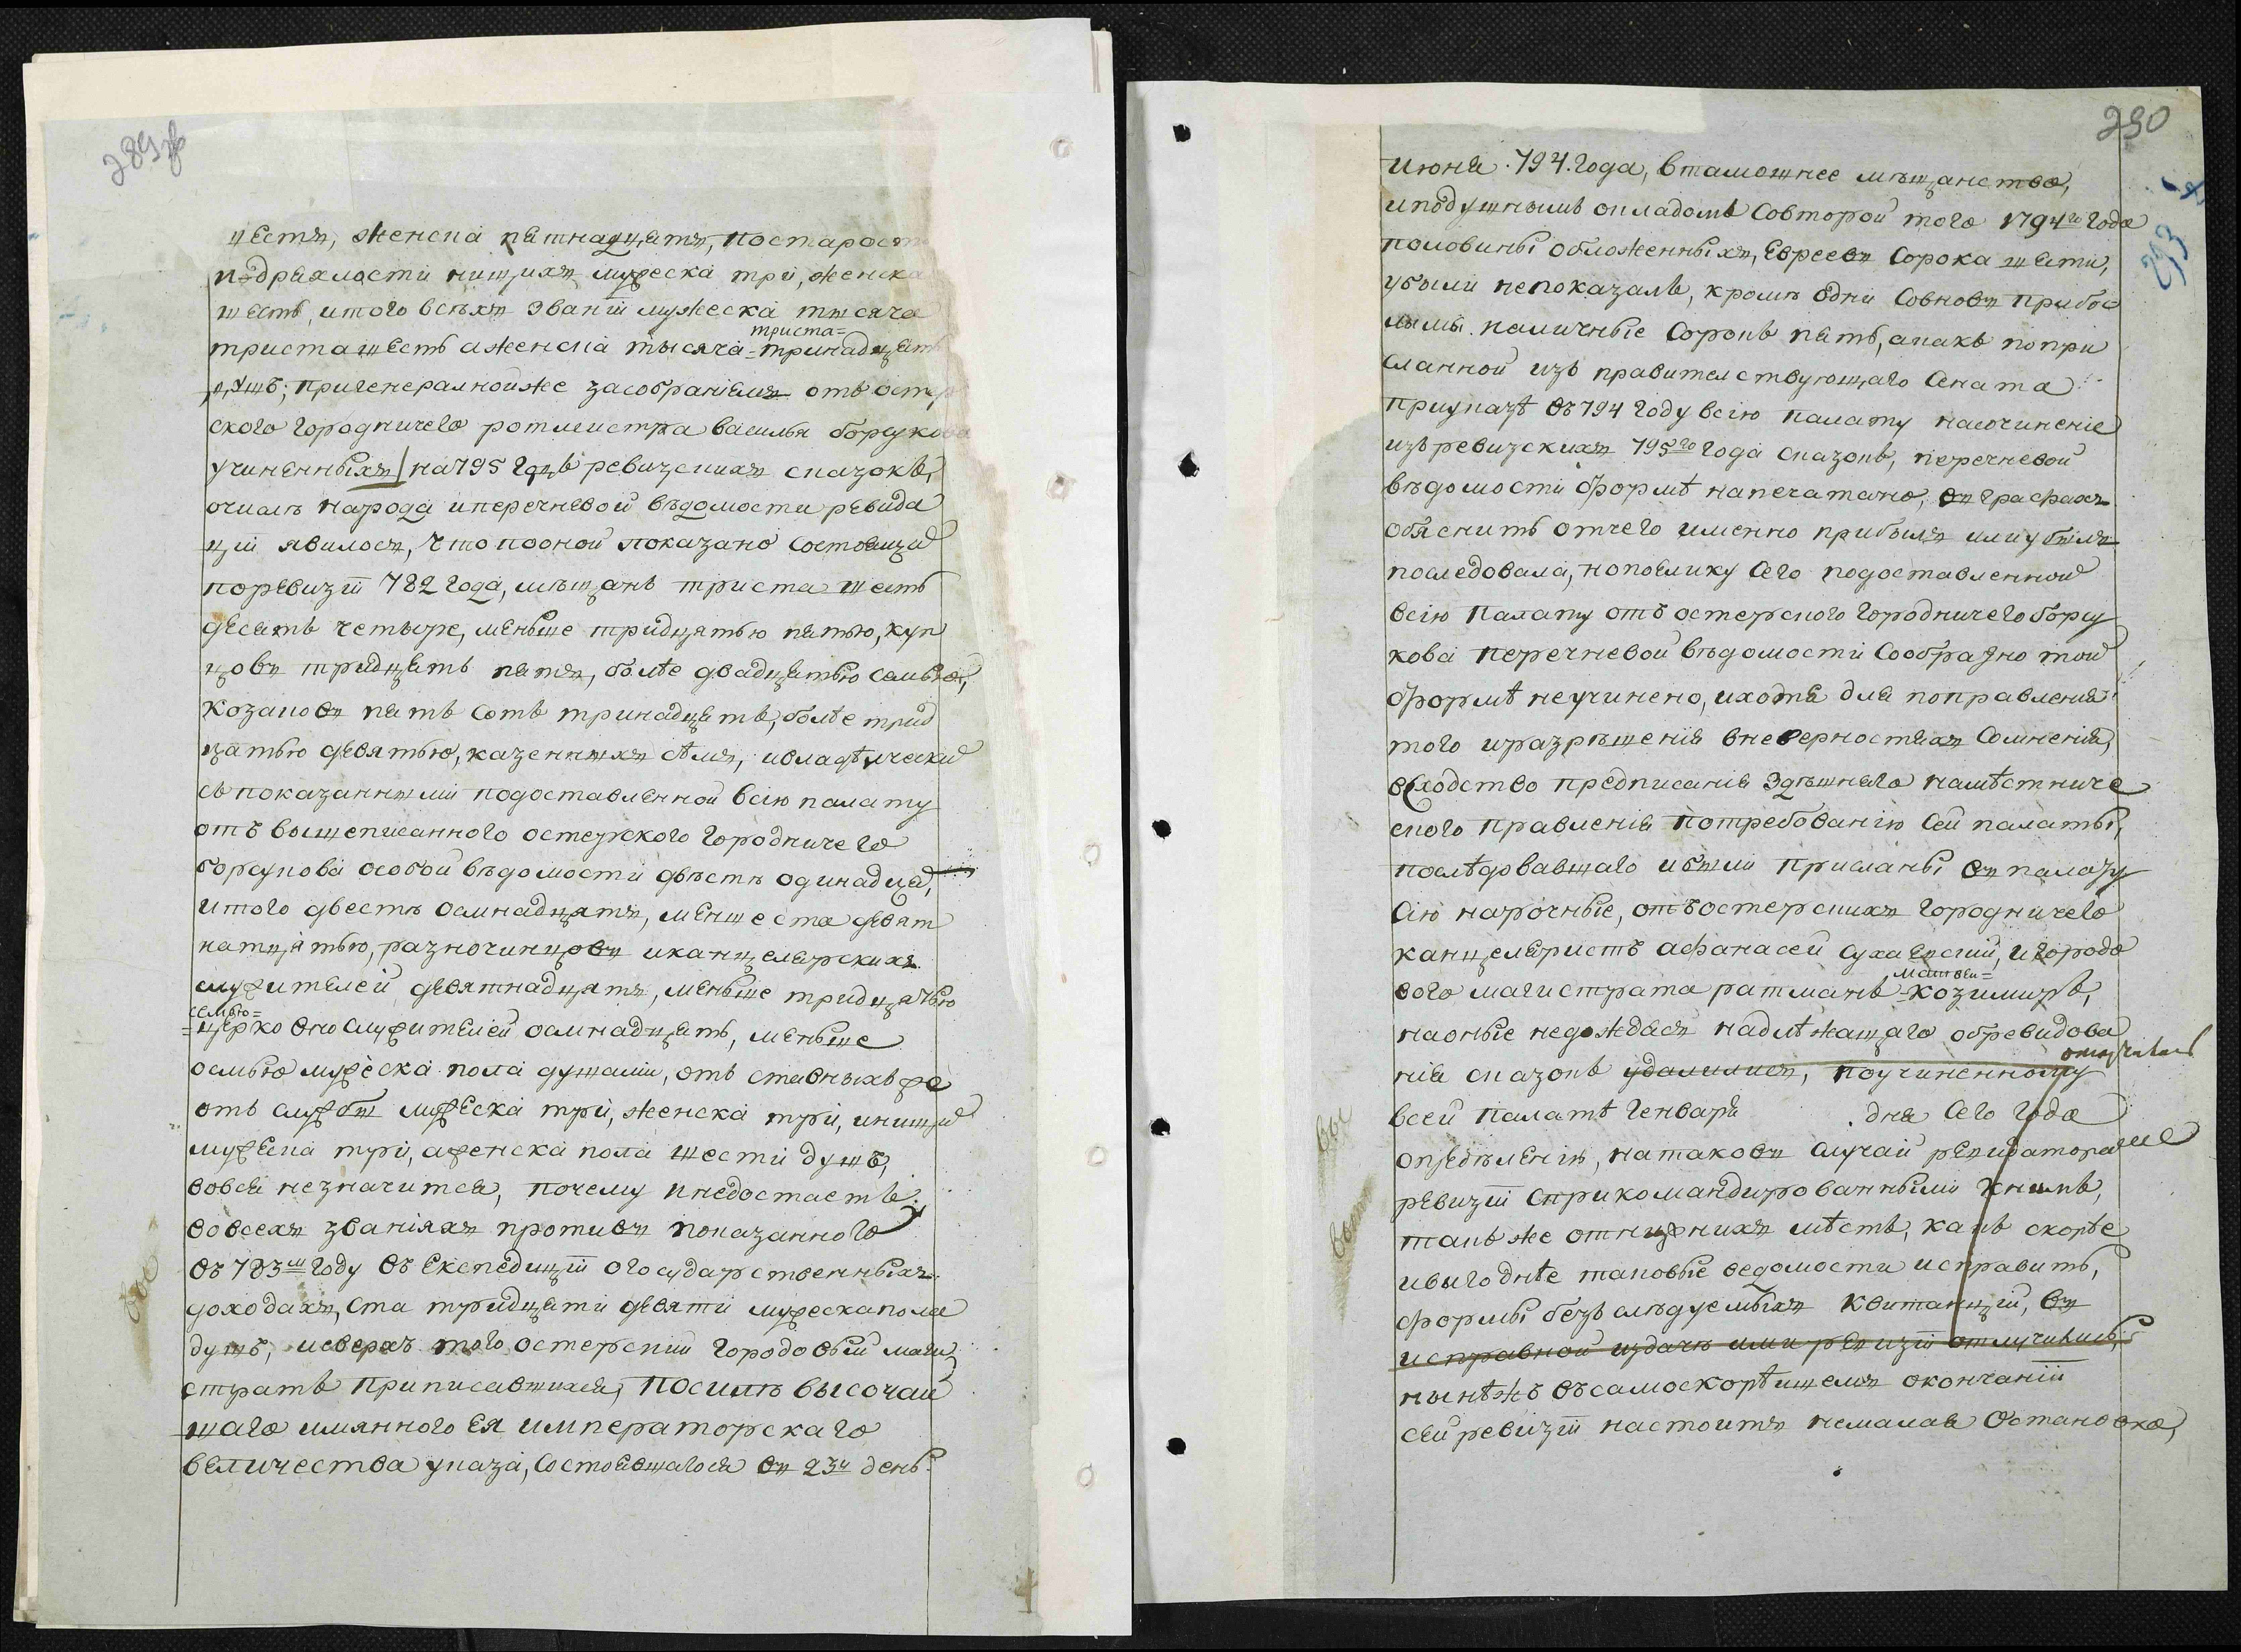 289 об
шесть, женска пятнадцать, по старост
и дряхлости нищихъ мужеска три, женска
шесть, итого всѣхъ званіи мужеска тысяча
триста шесть а женска тысяча = тринадцать
триста=
душъ; пригенералнойже засобраніемъ отъ остер
ского городничего ротмистра василья борсукова
учиненныхъ на 795 годъ ревизскихъ сказокъ,
очислѣ народа иперечневой вѣдомости ревида
цїи явилось, что пооной показано состоящи
поревизїи 782 года, мѣщанъ триста шесть
десятъ четыре, меньше тридцятью пятью, куп
цовъ тридцять пять, болѣе двадцятью семью,
козаковъ пять сотъ тринадцять, болѣе трид
цатью девятью, казенныхъ сѣлъ, ивладѣлчески
съ показанными подоставленной всію палату
отъ вышеписанного остерского городничего
борсукова особой вѣдомости двѣстѣ одинадца,
итого двестѣ осмнадцять, менше ста девят
натцятью, разночинцовъ иканцелярскихъ
служителей девятнадцять, меньше тридцятью
семью=
=церковно служителей осмнадцять, меньше
осмью мужеска пола душами, отъ ставныхъ же
отъ службы мужеска три, женска три, инищи
мужеска три, аженска пола шести душъ,
вовся незначится, почему инедостаетъ
вовсехъ званіяхъ противъ показанного
въ 783м году въ експедицїи огосударственныхъ
доходахъ, ста тридцяти девяти мужеска пола
душъ, исверхъ того остерскии городовый маги
стратъ приписавшихся, посилѣ высочай
шаго имянного ея императорскаго
величества указа, состоявшагося въ 23й день
290
293
июня 794. года, втамошнее мѣщанство,
иподушнымъ окладомъ совторой того 1794го года
половины обложенныхъ, евреевъ сорока шести,
убыли непоказалъ, кромѣ одни совновъ прибы
лымы наличные сорокъ пять, акакъ попри
сланной изъ правителствующаго сената
приуказѣ въ 794 году всію палату насочиненіе
изъ ревизскихъ 795го года сказокъ, перечневой
вѣдомости формѣ напечатано, въ графахъ
обяснить отчего именно прибыль или убыль
последовала, нопоелику сего подоставленной
всію палату отъ остерского городничего борсу
кова перечневой вѣдомости сообразно той
формѣ неучинено, ихотя для поправления
того иразрѣшенія вневерностяхъ сомненія,
всходство предписанія здѣшняго намѣстниче
ского правленія потребованію сей палаты,
послѣдовавшаго ибыли присланы въ палату
сію нарочные, отъ остерскихъ городничего
канцеляристъ афанасей сухаенскїй, игородо
матвѣи=
вого магистрата ратманъ =козимиръ,
наоные недождась надлѣжащаго обревидова
отлучились
нія сказокъ удалились, поучиненному
всей палатѣ генваря дня сего года
опредѣленію, натаковъ случай ревидатора
ревизїи сприкомандированными книмъ,
такъ же отнижнихъ мѣстъ, какъ скорѣе
ивыгоднѣе таковые ведомости исправить,
формы безъ следуемыхъ квитанцїй, въ
исправной издачѣ ими ревизїи отлучились,
нынѣжъ въсамоскорѣйшемъ окончанїи
сей ревизїи настоитъ немалая остановка,